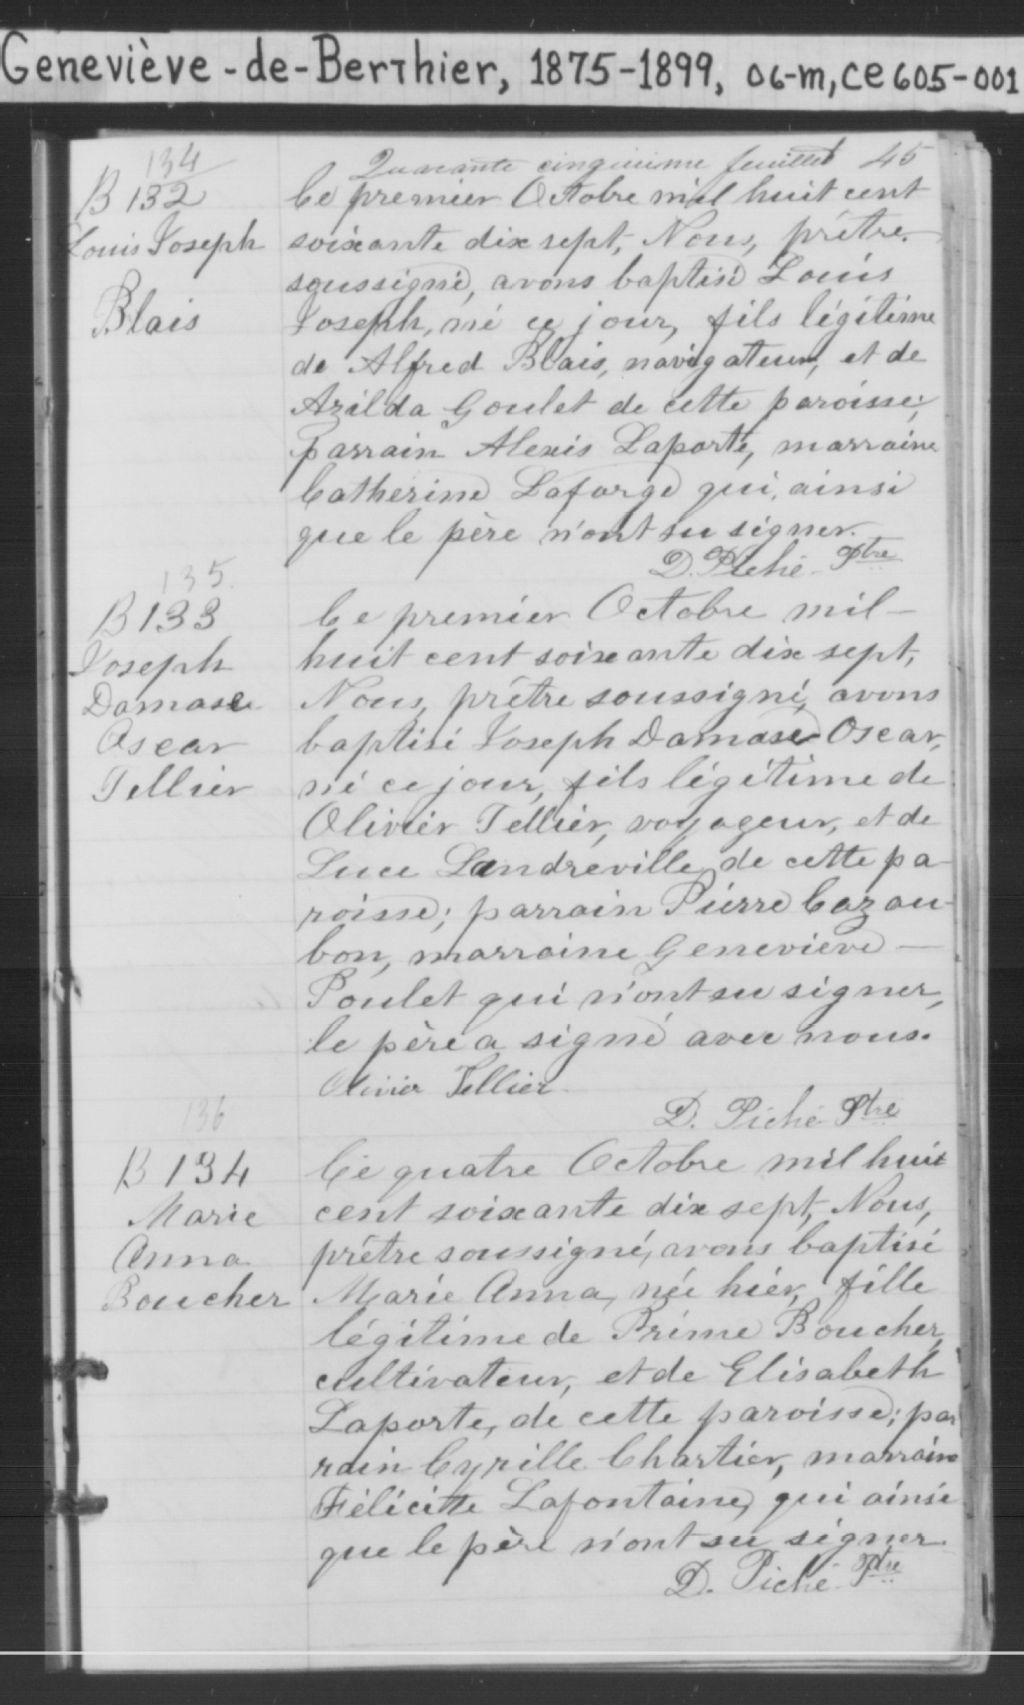 Geneviève-de-Berthier, 1875-1899, 06-m, ce605-001
Quarante cinquième feuillet 45
134
B 132
Louis Joseph
Blais
Ce premier Octobre mil huit cent
soixante dix sept, Nous, prêtre
soussigné, avons baptisé Louis
Joseph, né ce jour, fils légitime
de Alfred Blais, navigateur, et de
Azilda Goulet de cette paroisse;
parrain Alexis Laporte, marraine
Catherine Laforge qui, ainsi
que le père n'ont su signer.
D. Piché Ptre
135
B 133
Joseph
Damase
Oscar
Tellier
Ce premier Octobre mil-
huit cent soixante dix sept,
Nous, prêtre soussigné, avons
baptisé Joseph Damase Oscar,
né ce jour, fils légitime de
Olivier Tellier, voyageur, et de
Luce Landreville, de cette pa
roisse; parrain Pierre Cazau-
bon, marraine Geneviève -
Poulet qui n'ont su signer,
le père a signé avec nous.
Olivier Tellier
D. Piché Ptre
136
B 134
Marie
Anna
Boucher
Ce quatre Octobre mil huit
cent soixante dix sept, Nous,
prêtre soussigné, avons baptisé
Marie Anna, née hier, fille
légitime de Prime Boucher,
cultivateur, et de Elisabeth
Laporte, de cette paroisse; par
rain Cyrille Chartier, marraine
Félicitte Lafontaine, qui ainsi
que le père n'ont su signer
D. Piché Ptre